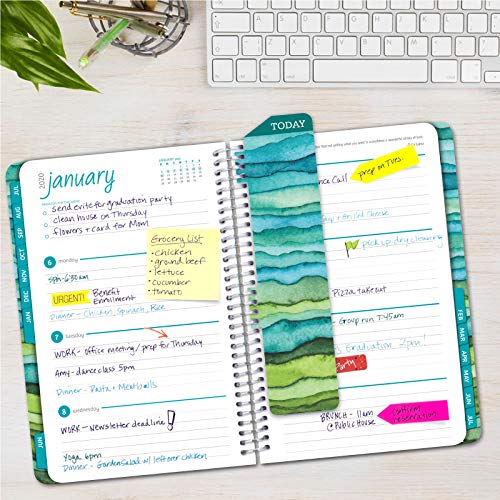 TODAY
2020
january
send evite for graduation party
clean house on Thursday
flowers + card for Mom
6 monday
URGENT! Benefit
Enrollment
Dinner - Chicken, Spinach, Rice
Grocery List
• chicken
• ground beef
• lettuce
• cucumber
7 tuesday
WORK - office meeting / prep for Thursday
Amy - dance class 5pm
Dinner - Pasta + Meatballs
8 wednesday
WORK - Newsletter deadline!
Yoga 6pm
Dinner - Garden Salad w/ leftover chicken
Call
prep on Tues.
pick up dry cleaning
Pizza takeout
Group run 7:45am
Graduation 2pm!
Party
BRUNCH - 11am
@ Public House
confirm
reservation
JUL
AUG
SEP
OCT
NOV
DEC
JAN
JUN
FEB
MAR
APR
MAY
JUN
JUL